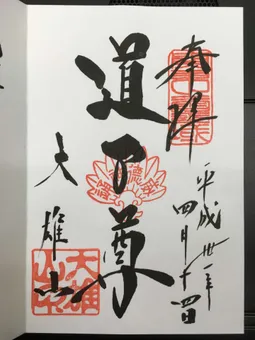 奉拝
平成卅一年
四月十四日
道了尊
大雄山
大雄